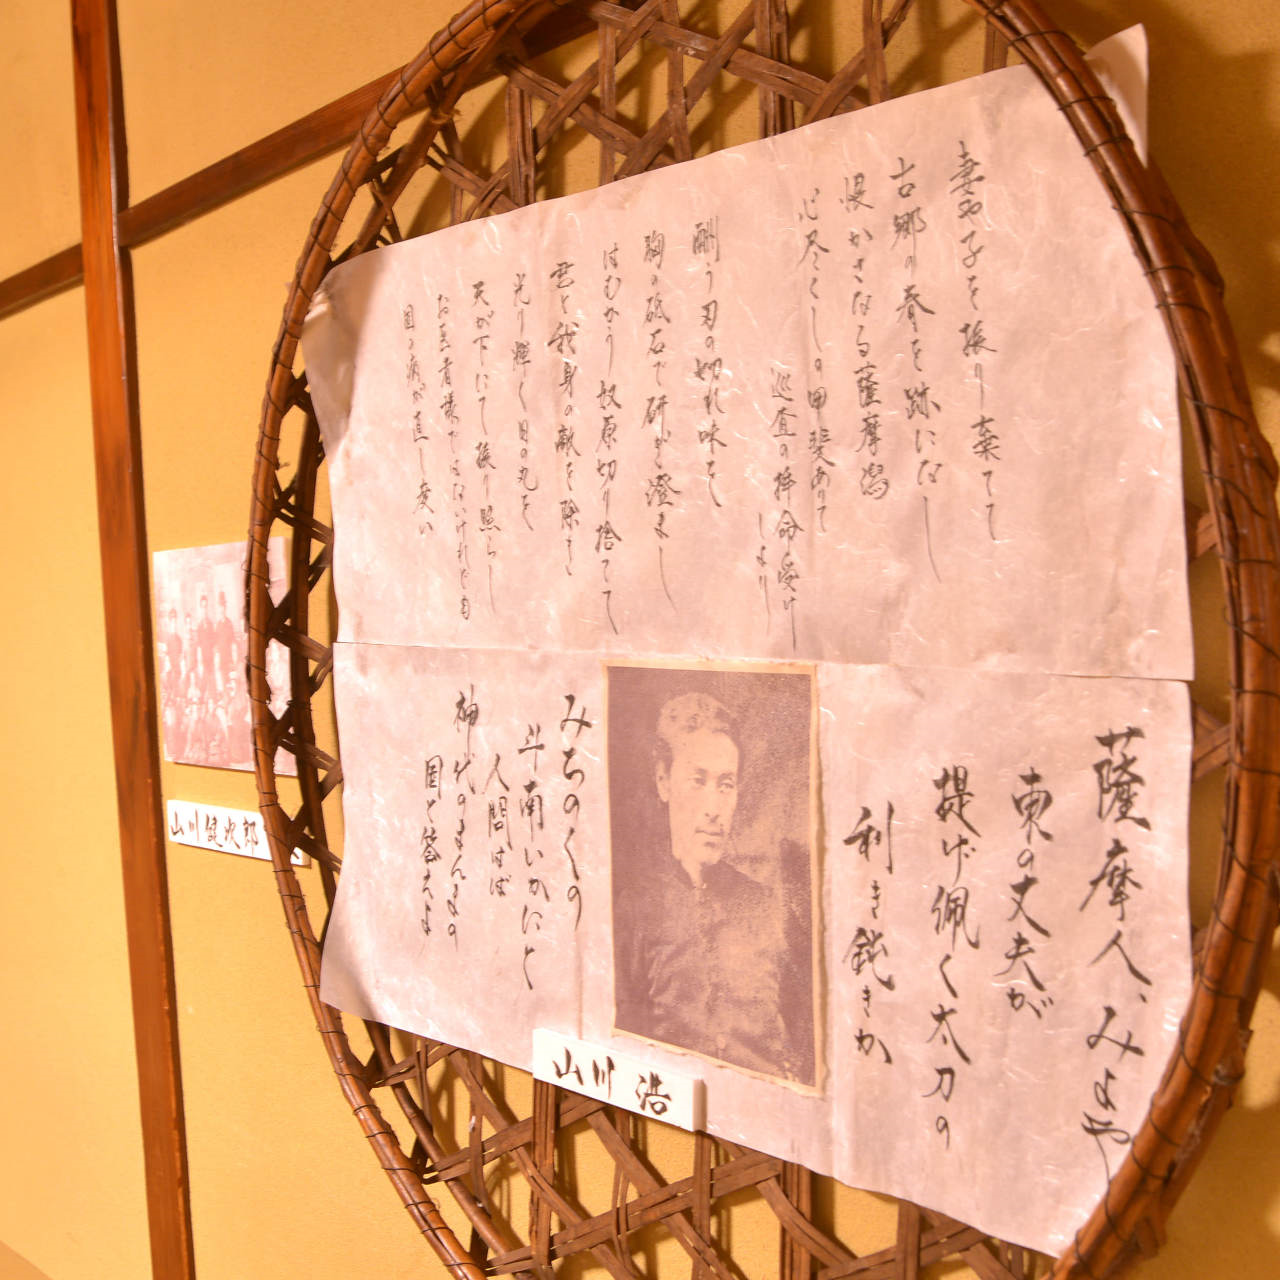 妻や子を振り棄てて
古郷の春を跡になし
恨かさなる薩摩潟
心尽くしの甲斐ありて
巡査の拝命受けしより
酬う刃の切れ味を
胸の砥石で研ぎ澄まし
はむかう奴原切り捨てて
君と我身の敵を除き
光り輝く日の丸を
天が下にて振り照らし
お医者様ではないけれども
国の病が直し度い
薩摩人、みよや
東の丈夫が
提げ佩く太刀の
利き鈍きか
みちのくの
斗南いかにと
人問はば
神代のまんまの
国と答えよ
山川 浩
山川健次郎